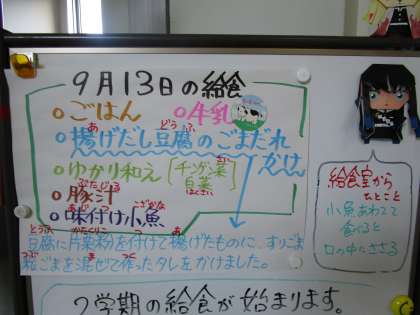 9月13日の給食
○ごはん ○牛乳
○揚げだし豆腐のごまだれ
かけ
○ゆかり和え［チンゲン菜
白菜］
○豚汁
○味付け小魚
豆腐に片栗粉を付けて揚げたものに、すりごま
粒ごまを混ぜて作ったタレをかけました。
給食室から
ひとこと
小魚あわてて
食べると
口の中にささる
2学期の給食が始まります。